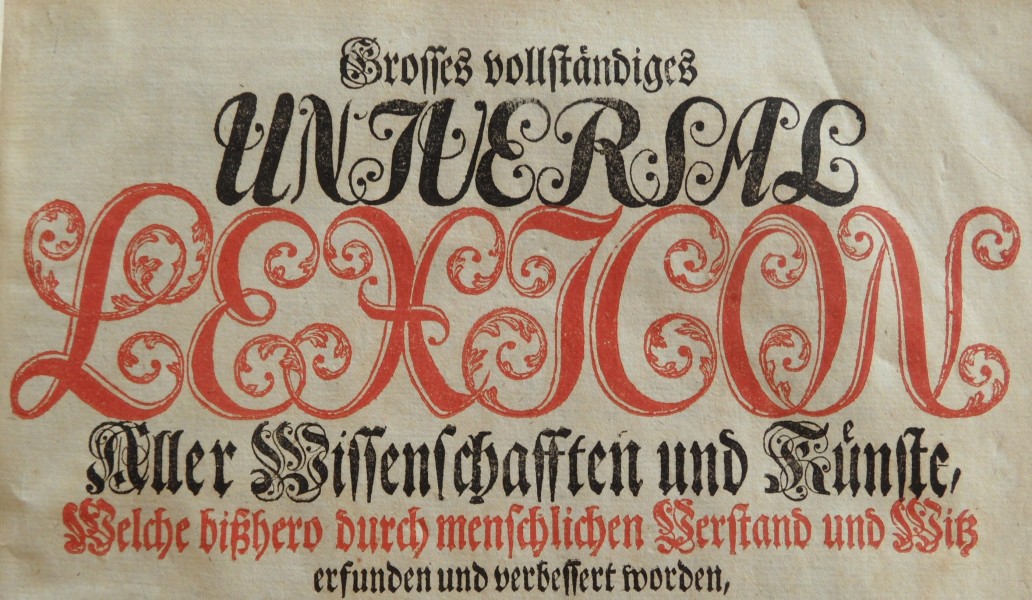 Grosses vollständiges
UNIVERSAL
LEXICON
Aller Wissenschafften und Künste,
Welche bißhero durch menschlichen Verstand und Witz
erfunden und verbessert worden,